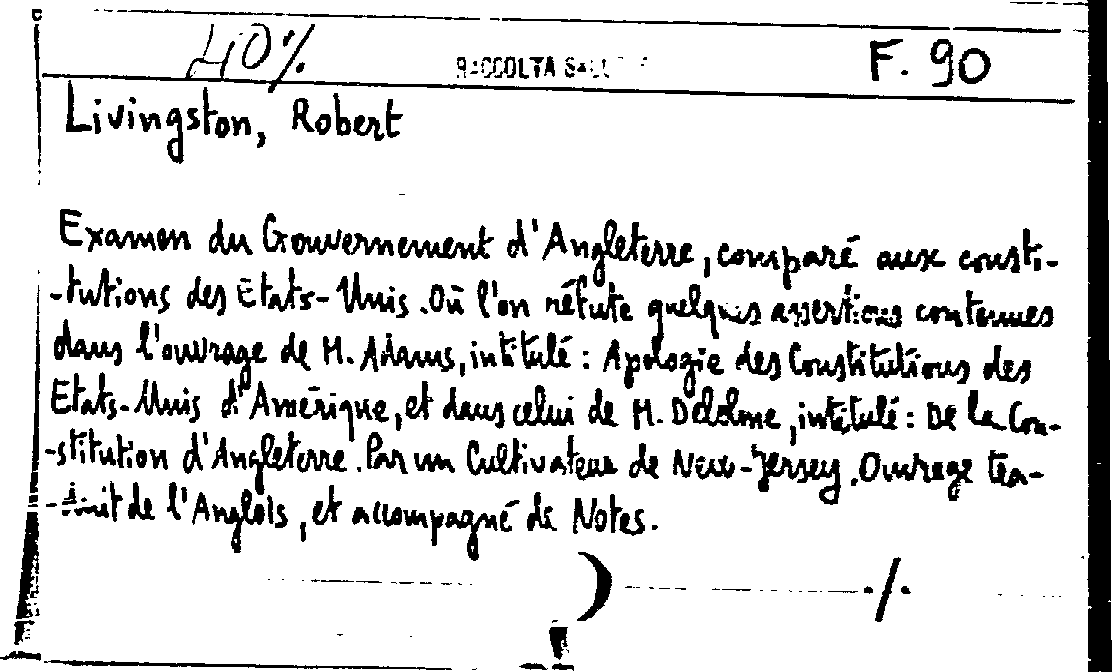 40% RACCOLTA F. 90
Livingston, Robert
Examen du Gouvernement d'Angleterre, comparé aux consti-
-tutions des Etats-Unis. Où l'on réfute quelques assertions contenues
dans l'ouvrage de M. Adams, intitulé : Apologie des Constitutions des
Etats-Unis d'Amérique, et dans celui de M. Delolme, intitulé : De la Con-
-stitution d'Angleterre. Par un Cultivateur de New-Jersey. Ouvrage tra-
-duit de l'Anglois, et accompagné de Notes.
./.